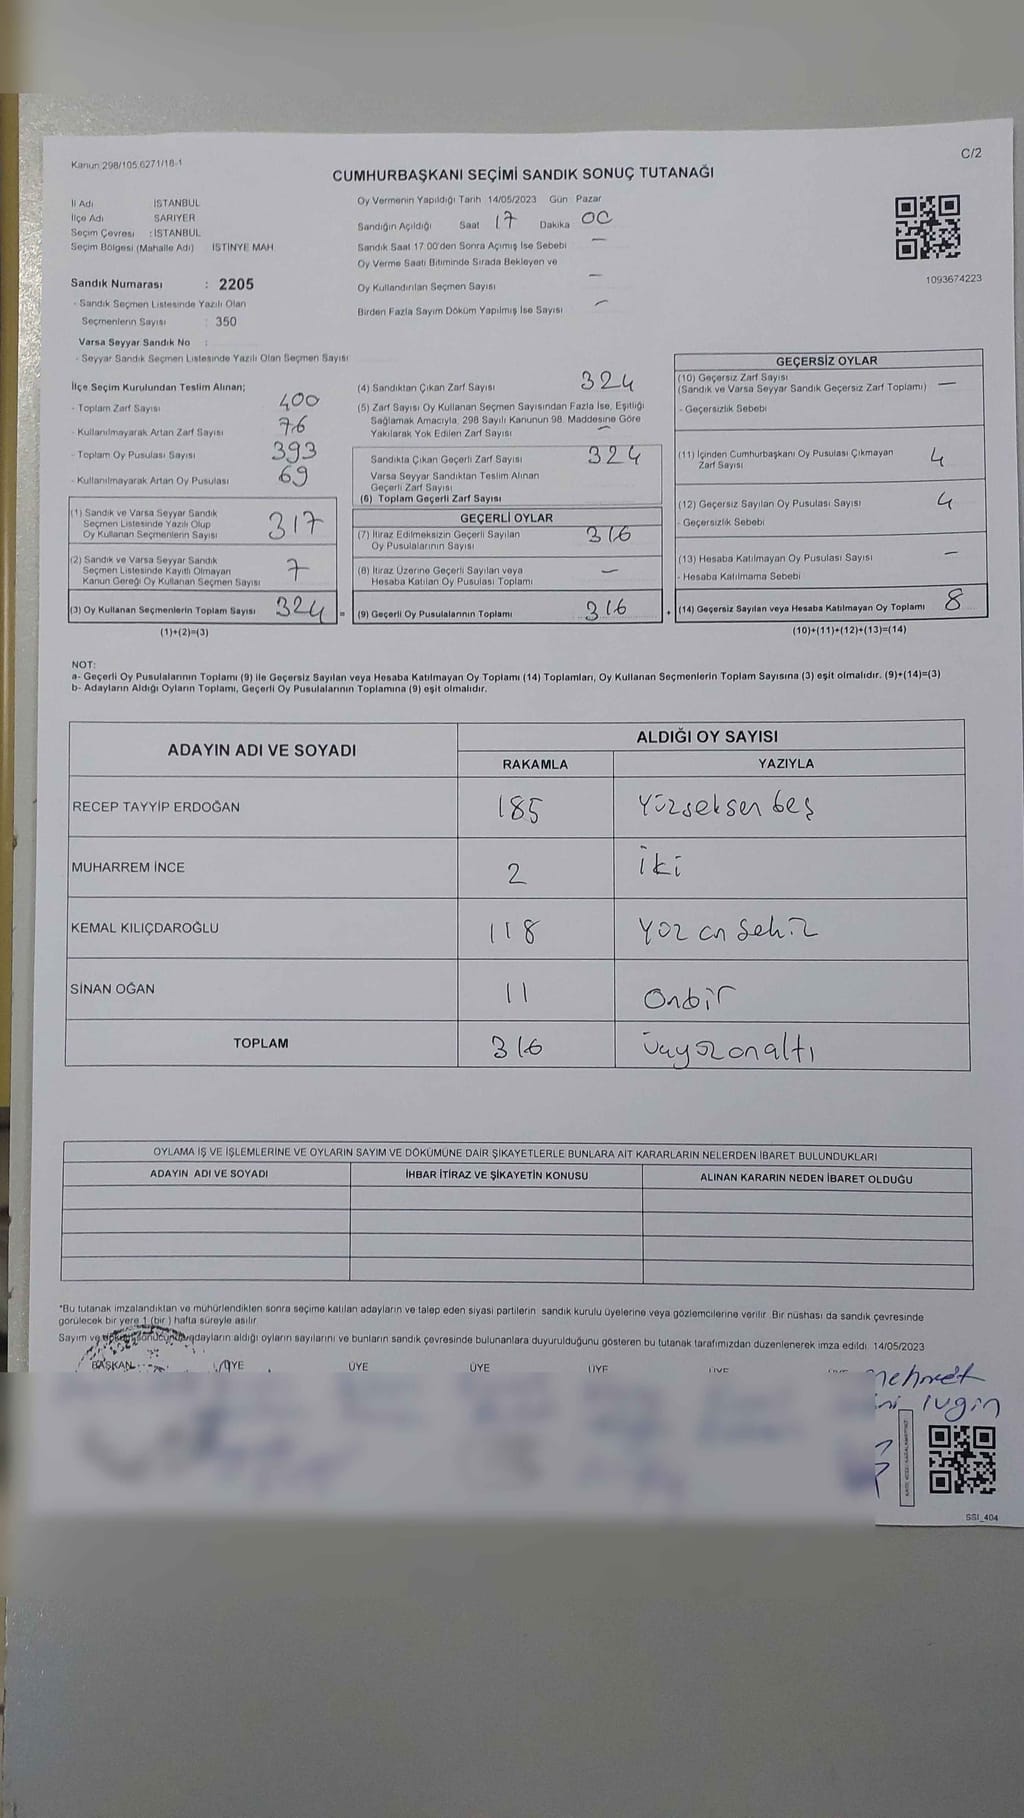 Kanun 298/105.6271/18-1
C/2
CUMHURBAŞKANI SEÇİMİ SANDIK SONUÇ TUTANAĞI
İl Adı İSTANBUL
İlçe Adı SARIYER
Seçim Çevresi : İSTANBUL
Seçim Bölgesi (Mahalle Adı) İSTİNYE MAH.
Oy Vermenin Yapıldığı Tarih 14/05/2023 Gün Pazar
Sandığın Açıldığı Saat 17 Dakika 00
Sandık Saat 17:00'den Sonra Açımış İse Sebebi —
Oy Verme Saati Bitiminde Sırada Bekleyen ve
Oy Kullandırılan Seçmen Sayısı —
Birden Fazla Sayım Döküm Yapılmış İse Sayısı —
1093674223
Sandık Numarası : 2205
- Sandık Seçmen Listesinde Yazılı Olan
Seçmenlerin Sayısı : 350
Varsa Seyyar Sandık No :
- Seyyar Sandık Seçmen Listesinde Yazılı Olan Seçmen Sayısı
İlçe Seçim Kurulundan Teslim Alınan;
- Toplam Zarf Sayısı 400
- Kullanılmayarak Artan Zarf Sayısı 76
- Toplam Oy Pusulası Sayısı 393
- Kullanılmayarak Artan Oy Pusulası 69
(1) Sandık ve Varsa Seyyar Sandık
Seçmen Listesinde Yazılı Olup
Oy Kullanan Seçmenlerin Sayısı 317
(2) Sandık ve Varsa Seyyar Sandık
Seçmen Listesinde Kayıtlı Olmayan
Kanun Gereği Oy Kullanan Seçmen Sayısı 7
(3) Oy Kullanan Seçmenlerin Toplam Sayısı 324 =
(1)+(2)=(3)
(4) Sandıktan Çıkan Zarf Sayısı 324
(5) Zarf Sayısı Oy Kullanan Seçmen Sayısından Fazla İse, Eşitliği
Sağlamak Amacıyla, 298 Sayılı Kanunun 98. Maddesine Göre
Yakılarak Yok Edilen Zarf Sayısı —
Sandıkta Çıkan Geçerli Zarf Sayısı 324
Varsa Seyyar Sandıktan Teslim Alınan
Geçerli Zarf Sayısı
(6) Toplam Geçerli Zarf Sayısı
GEÇERLİ OYLAR
(7) İtiraz Edilmeksizin Geçerli Sayılan
Oy Pusulalarının Sayısı 316
(8) İtiraz Üzerine Geçerli Sayılan veya
Hesaba Katılan Oy Pusulası Toplamı —
(9) Geçerli Oy Pusulalarının Toplamı 316 +
GEÇERSİZ OYLAR
(10) Geçersiz Zarf Sayısı
(Sandık ve Varsa Seyyar Sandık Geçersiz Zarf Toplamı) —
- Geçersizlik Sebebi
(11) İçinden Cumhurbaşkanı Oy Pusulası Çıkmayan
Zarf Sayısı 4
(12) Geçersiz Sayılan Oy Pusulası Sayısı 4
- Geçersizlik Sebebi
(13) Hesaba Katılmayan Oy Pusulası Sayısı —
- Hesaba Katılmama Sebebi
(14) Geçersiz Sayılan veya Hesaba Katılmayan Oy Toplamı 8
(10)+(11)+(12)+(13)=(14)
NOT:
a- Geçerli Oy Pusulalarının Toplamı (9) ile Geçersiz Sayılan veya Hesaba Katılmayan Oy Toplamı (14) Toplamları, Oy Kullanan Seçmenlerin Toplam Sayısına (3) eşit olmalıdır. (9)+(14)=(3)
b- Adayların Aldığı Oyların Toplamı, Geçerli Oy Pusulalarının Toplamına (9) eşit olmalıdır.
ADAYIN ADI VE SOYADI ALDIĞI OY SAYISI
RAKAMLA YAZIYLA
RECEP TAYYİP ERDOĞAN 185 Yüzseksen beş
MUHARREM İNCE 2 iki
KEMAL KILIÇDAROĞLU 118 Yüz on sekiz
SİNAN OĞAN 11 Onbir
TOPLAM 316 üçyüzonaltı
OYLAMA İŞ VE İŞLEMLERİNE VE OYLARIN SAYIM VE DÖKÜMÜNE DAİR ŞİKAYETLERLE BUNLARA AİT KARARLARIN NELERDEN İBARET BULUNDUKLARI
ADAYIN ADI VE SOYADI İHBAR İTİRAZ VE ŞİKAYETİN KONUSU ALINAN KARARIN NEDEN İBARET OLDUĞU
*Bu tutanak imzalandıktan ve mühürlendikten sonra seçime katılan adayların ve talep eden siyasi partilerin sandık kurulu üyelerine veya gözlemcilerine verilir. Bir nüshası da sandık çevresinde
görülecek bir yere 1 (bir ) hafta süreyle asılır.
Sayım ve adayların aldığı oyların sayılarını ve bunların sandık çevresinde bulunanlara duyurulduğunu gösteren bu tutanak tarafımızdan düzenlenerek imza edildi. 14/05/2023
BAŞKAN ÜYE ÜYE ÜYE ÜYE ÜYE
SSI_404